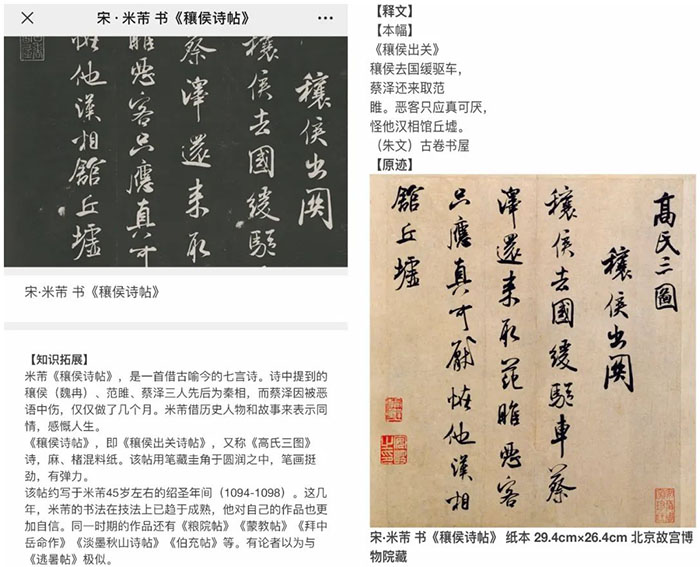 宋 · 米芾 书《穰侯诗帖》
穰侯出関
穰侯去國緩駈
蔡澤還来取
睢惡客只應真可
恠他漢相館丘墟
宋·米芾 书《穰侯诗帖》
【知识拓展】
米芾《穰侯诗帖》，是一首借古喻今的七言诗。诗中提到的
穰侯（魏冉）、范雎、蔡泽三人先后为秦相，而蔡泽因被恶
语中伤，仅仅做了几个月。米芾借历史人物和故事来表示同
情，感慨人生。
《穰侯诗帖》，即《穰侯出关诗帖》，又称《高氏三图》
诗，麻、楮混料纸。该帖用笔藏圭角于圆润之中，笔画挺
劲，有弹力。
该帖约写于米芾45岁左右的绍圣年间（1094-1098）。这几
年，米芾的书法在技法上已趋于成熟，他对自己的作品也更
加自信。同一时期的作品还有《粮院帖》《蒙教帖》《拜中
岳命作》《淡墨秋山诗帖》《伯充帖》等。有论者以为与
《逃暑帖》极似。
【释文】
【本幅】
《穰侯出关》
穰侯去国缓驱车，
蔡泽还来取范
睢。恶客只应真可厌，
怪他汉相馆丘墟。
（朱文）古卷书屋
【原迹】
髙氏三圖
穰侯出関
穰侯去國緩駈車蔡
澤還来取范睢惡客
只應真可厭恠他漢相
館丘墟
宋·米芾 书《穰侯诗帖》 纸本 29.4cm×26.4cm 北京故宫博
物院藏